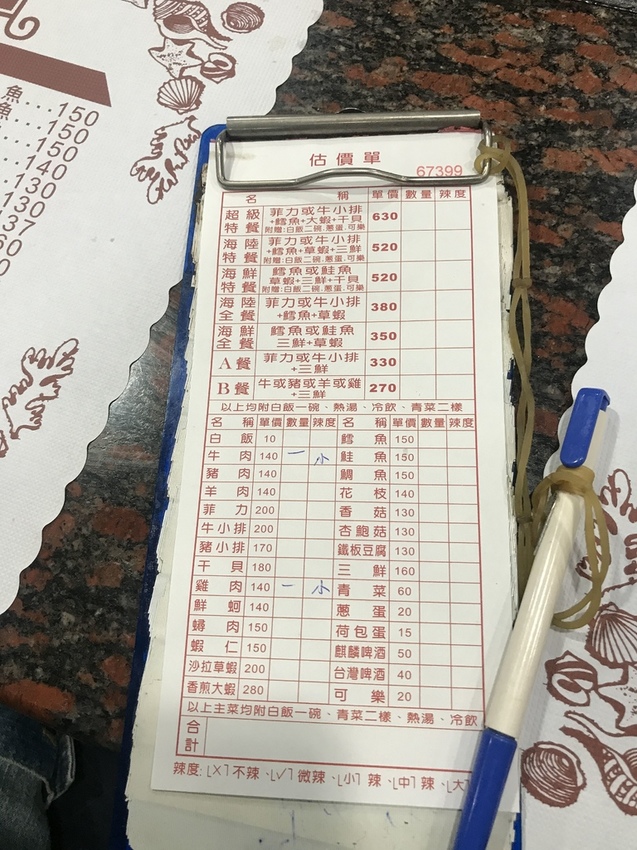 魚...150
魚...150
150
140
130
130
137
估價單
67399
名 稱 單價 數量 辣度
超級特餐 菲力或牛小排 +鱈魚+大蝦+干貝 附贈:白飯二碗.蔥蛋.可樂 630
海陸特餐 菲力或牛小排 +鱈魚+草蝦+三鮮 附贈:白飯二碗.蔥蛋.可樂 520
海鮮特餐 鱈魚或鮭魚 草蝦+三鮮+干貝 附贈:白飯二碗.蔥蛋.可樂 520
海陸全餐 菲力或牛小排 +鱈魚+草蝦 380
海鮮全餐 鱈魚或鮭魚 三鮮+草蝦 350
A餐 菲力或牛小排 +三鮮 330
B餐 牛或豬或羊或雞 +三鮮 270
以上均附白飯一碗、熱湯、冷飲、青菜二樣
名 稱 單價 數量 辣度 名 稱 單價 數量 辣度
白飯 10 鱈魚 150
牛肉 140 一 小 鮭魚 150
豬肉 140 鯛魚 150
羊肉 140 花枝 140
菲力 200 香菇 130
牛小排 200 杏鮑菇 130
豬小排 170 鐵板豆腐 130
干貝 180 三鮮 160
雞肉 140 一 小 青菜 60
鮮蚵 140 蔥蛋 20
蟳肉 150 荷包蛋 15
蝦仁 150 麒麟啤酒 50
沙拉草蝦 200 台灣啤酒 40
香煎大蝦 280 可樂 20
以上主菜均附白飯一碗、青菜二樣、熱湯、冷飲
合計
辣度:「X」不辣、「V」微辣、「小」辣、「中」辣、「大」